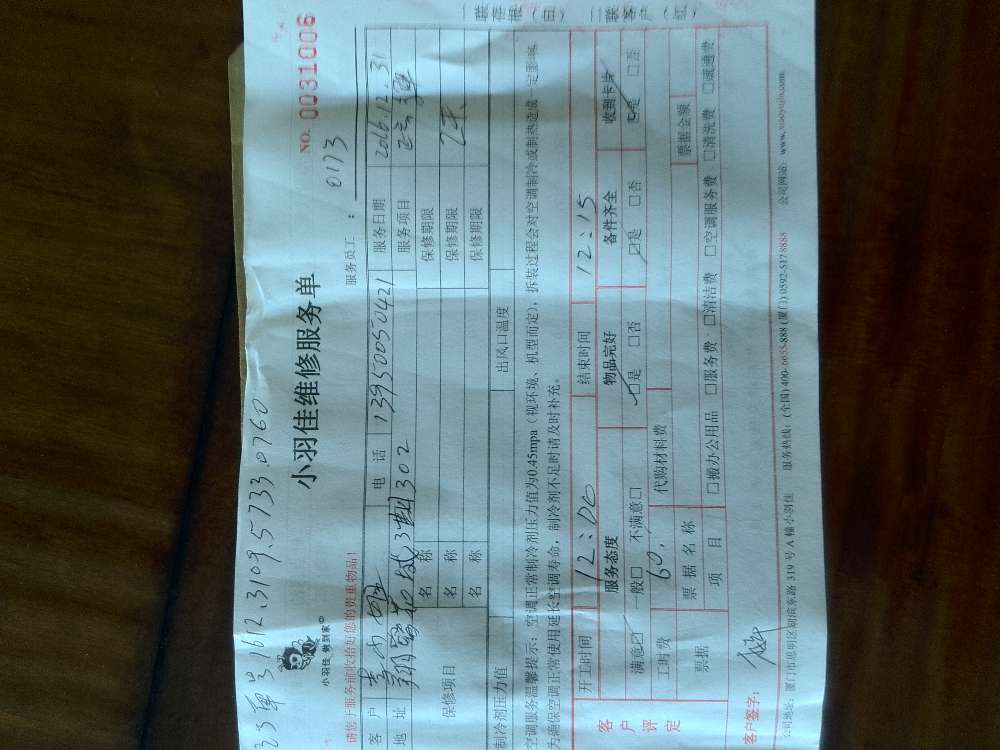 1612.3109.5733.0760
小羽佳 做到家
小羽佳维修服务单
NO. 0031006
请您于服务前收拾好您的贵重物品!
服务员工: 0173
客户 电话 13950050421 服务日期 2016.12.31
地址 3期302 服务项目
保修项目 名称 保修期限
名称 保修期限
名称 保修期限
制冷剂压力值 出风口温度
空调服务温馨提示:空调正常制冷剂压力值为0.45mpa(视环境、机型而定),拆装过程会对空调制冷或制热造成一定影响,
为确保空调正常使用延长空调寿命,制冷剂不足时请及时补充。
客户评定
开工时间 12:00 结束时间 12:15
服务态度 物品完好 备件齐全 收到卡片
满意☑ 一般□ 不满意□ ☑是 □否 ☑是 □否 ☑是 □否
工时费 60. 代购材料费
票据 票据名称 票据金额
项目 □搬办公用品 □服务费 □清洁费 □空调服务费 □清洗费 □疏通费
客户签字:
公司地址:厦门市思明区湖滨东路 319 号 A 幢小羽佳 服务热线:(全国)400-6655-888 (厦门) 0592-5178888 公司网站:www.xiaoyujia.com
一联存根(白) 二联客户(红)